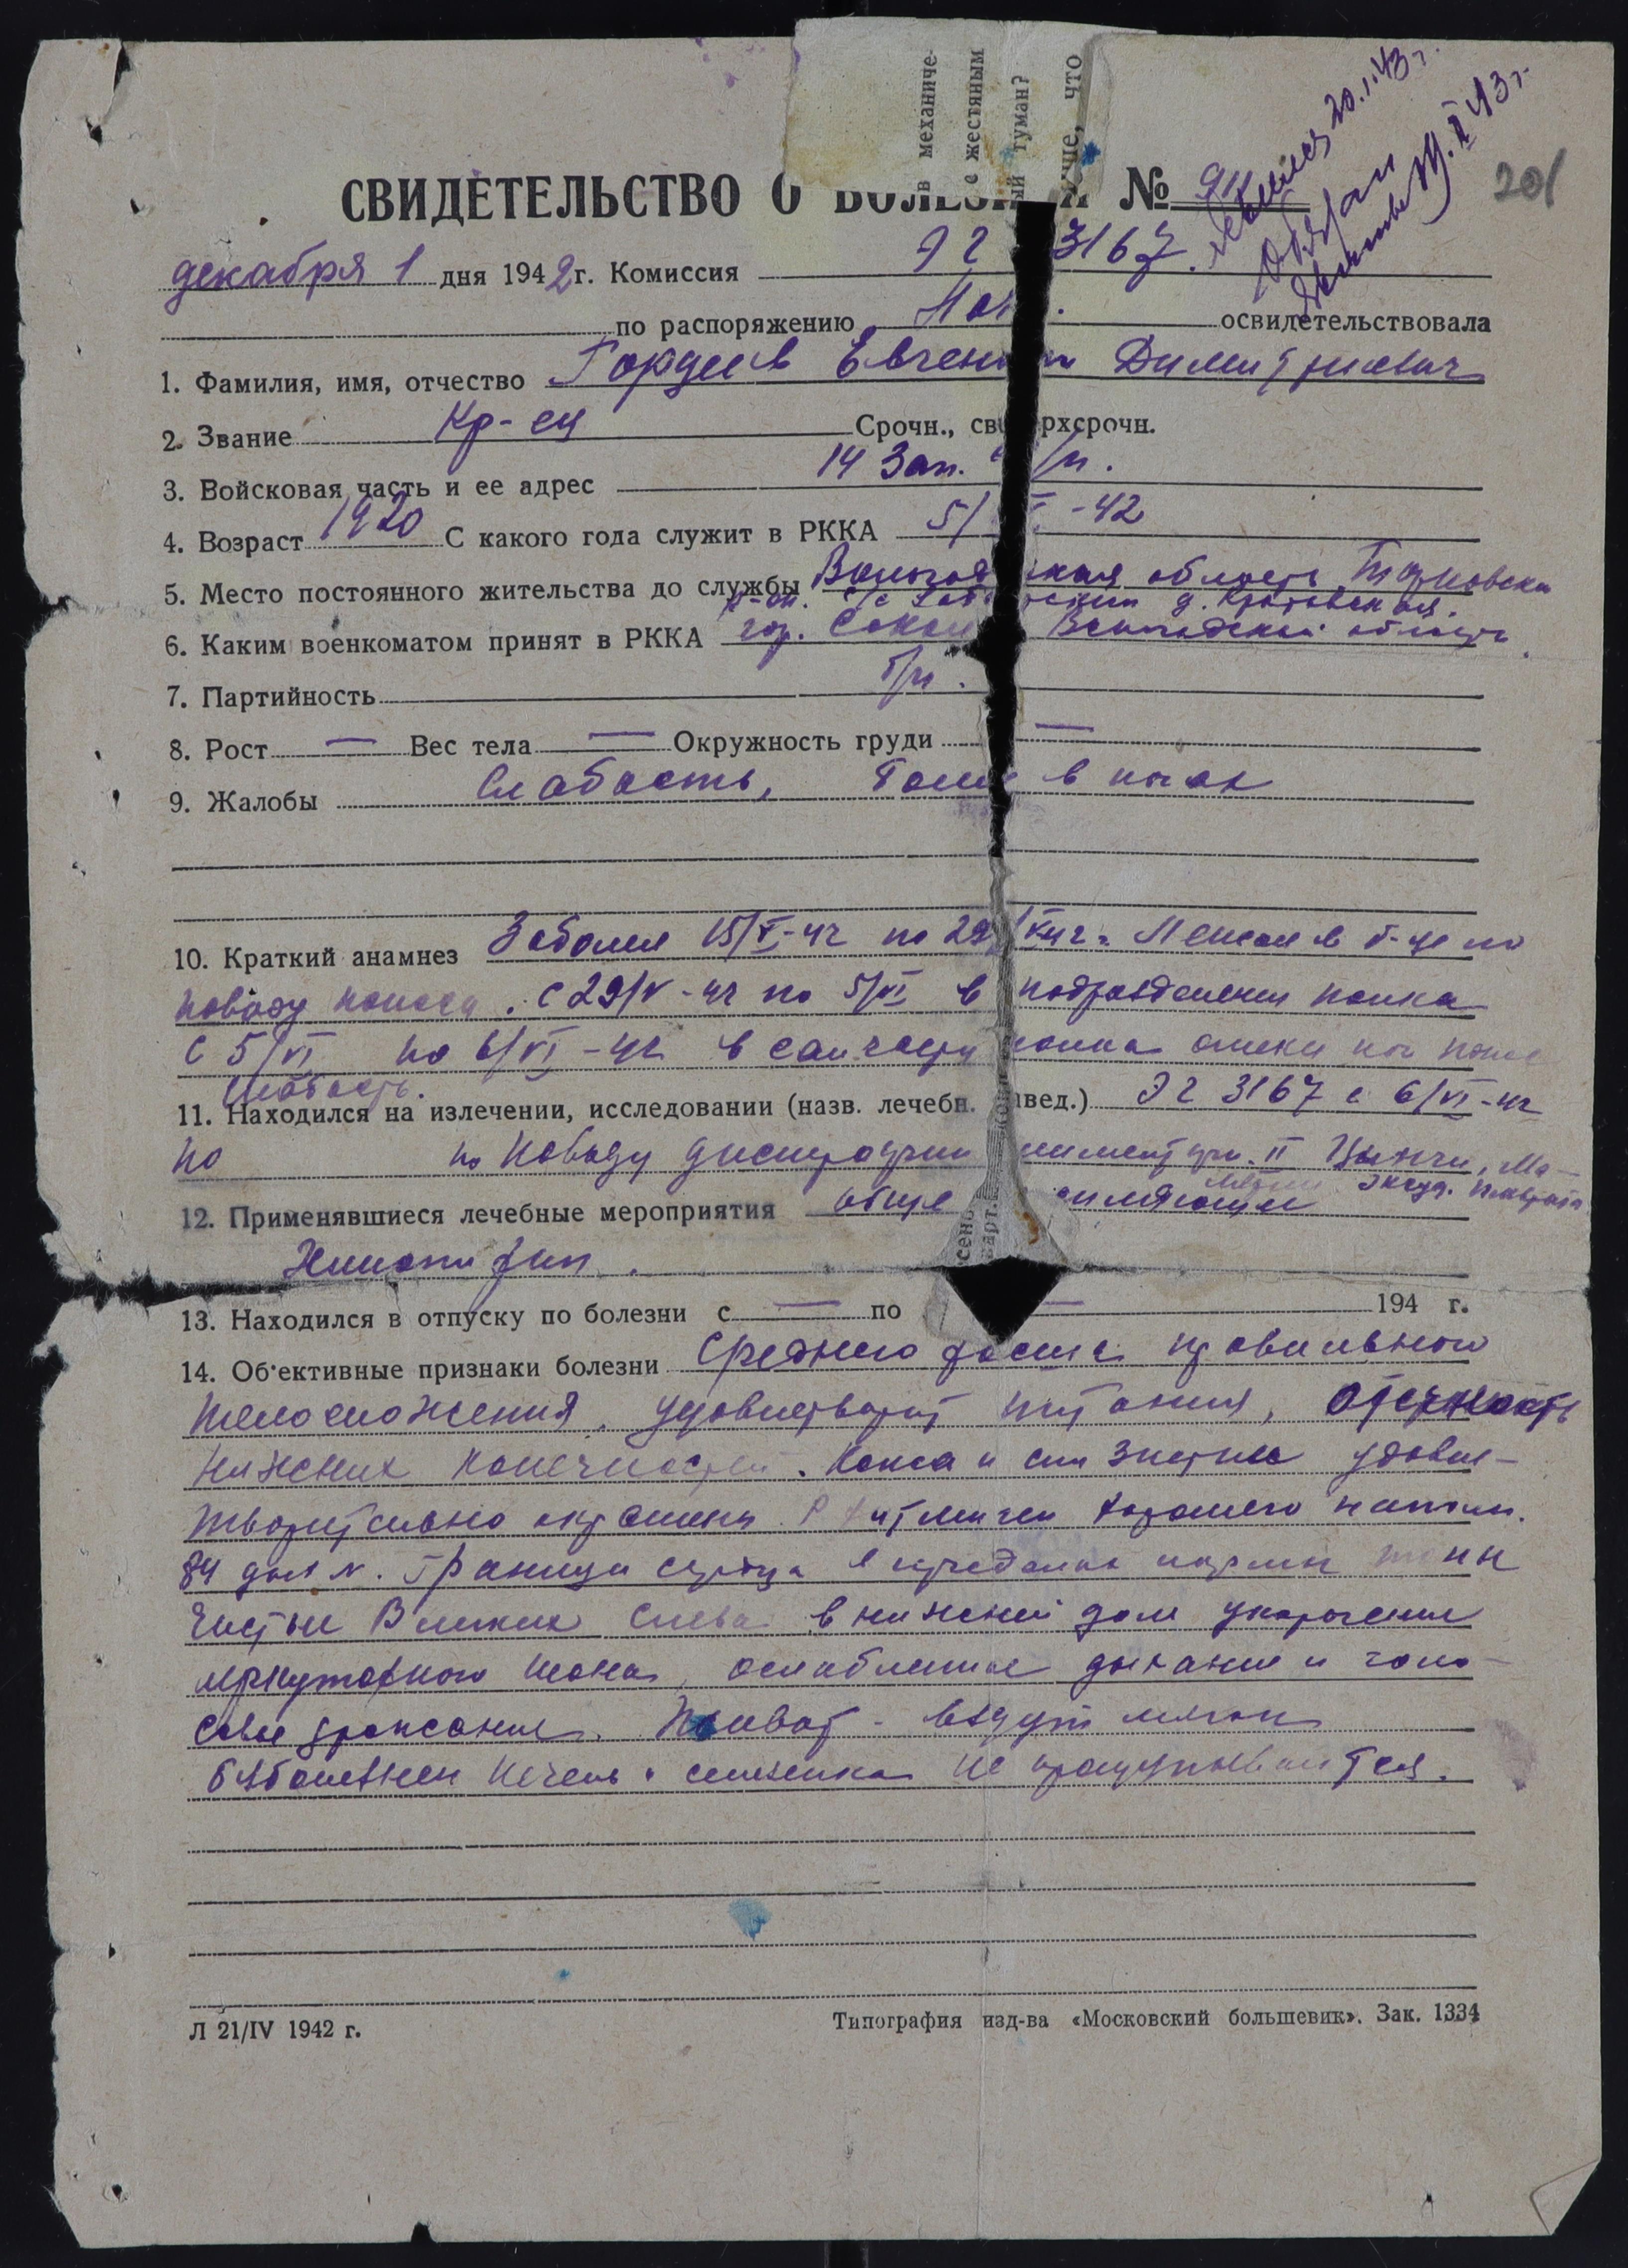 в механиче-
е жестяным
ый туман?
что
20.1.43 г.
43 г.
201
СВИДЕТЕЛЬСТВО О БОЛЕЗНИ №
декабря 1 дня 1942 г. Комиссия ЭГ 3167
по распоряжению Нач. освидетельствовала
1. Фамилия, имя, отчество Гордеев Евгений Димитриевич
2. Звание кр-ец Срочн., сверхсрочн.
3. Войсковая часть и ее адрес 14 Зап. с/п.
4. Возраст 1920 С какого года служит в РККА 5/ -42
5. Место постоянного жительства до службы Вологодская область
р-он. с/с д.
6. Каким военкоматом принят в РККА гор. Сокол Вологодской область
7. Партийность б/п.
8. Рост — Вес тела — Окружность груди —
9. Жалобы Слабость, боли в ногах
10. Краткий анамнез Заболел 15/V-42 по 29/V 42 г. Лежал в б-це по
поводу поноса. С 29/V-42 по 5/VI в подразделении полка
с 5/VI по 6/VI-42 в санчасти полка отеки ног понос
слабость.
11. Находился на излечении, исследовании (назв. лечебн. завед.) ЭГ 3167 с 6/VI-42
по по поводу дистрофии алиментарн. II Цынги,
экссуд. плеврита
12. Применявшиеся лечебные мероприятия обще
13. Находился в отпуску по болезни с — по — 194 г.
14. Об'ективные признаки болезни Среднего роста правильного
телосложения, удовлетворит питания, отечность
нижних конечностей. Кожа и слизистые удовле-
творительно окрашены. Р ритмичен хорошего наполн.
84 уд. в м. Границы сердца в пределах нормы тоны
чистые В легких слева в нижней доле укорочение
перкуторного тона, ослабление дыхание и голо-
совое дрожание. Живот - вздут мягок
безболезнен печень и селезенка не прощупываются.
Л 21/IV 1942 г.
Типография изд-ва «Московский большевик». Зак. 1334